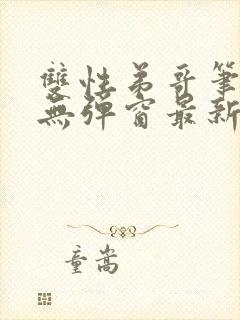 雙性弟哥筆
無彈窗最新
童嵩